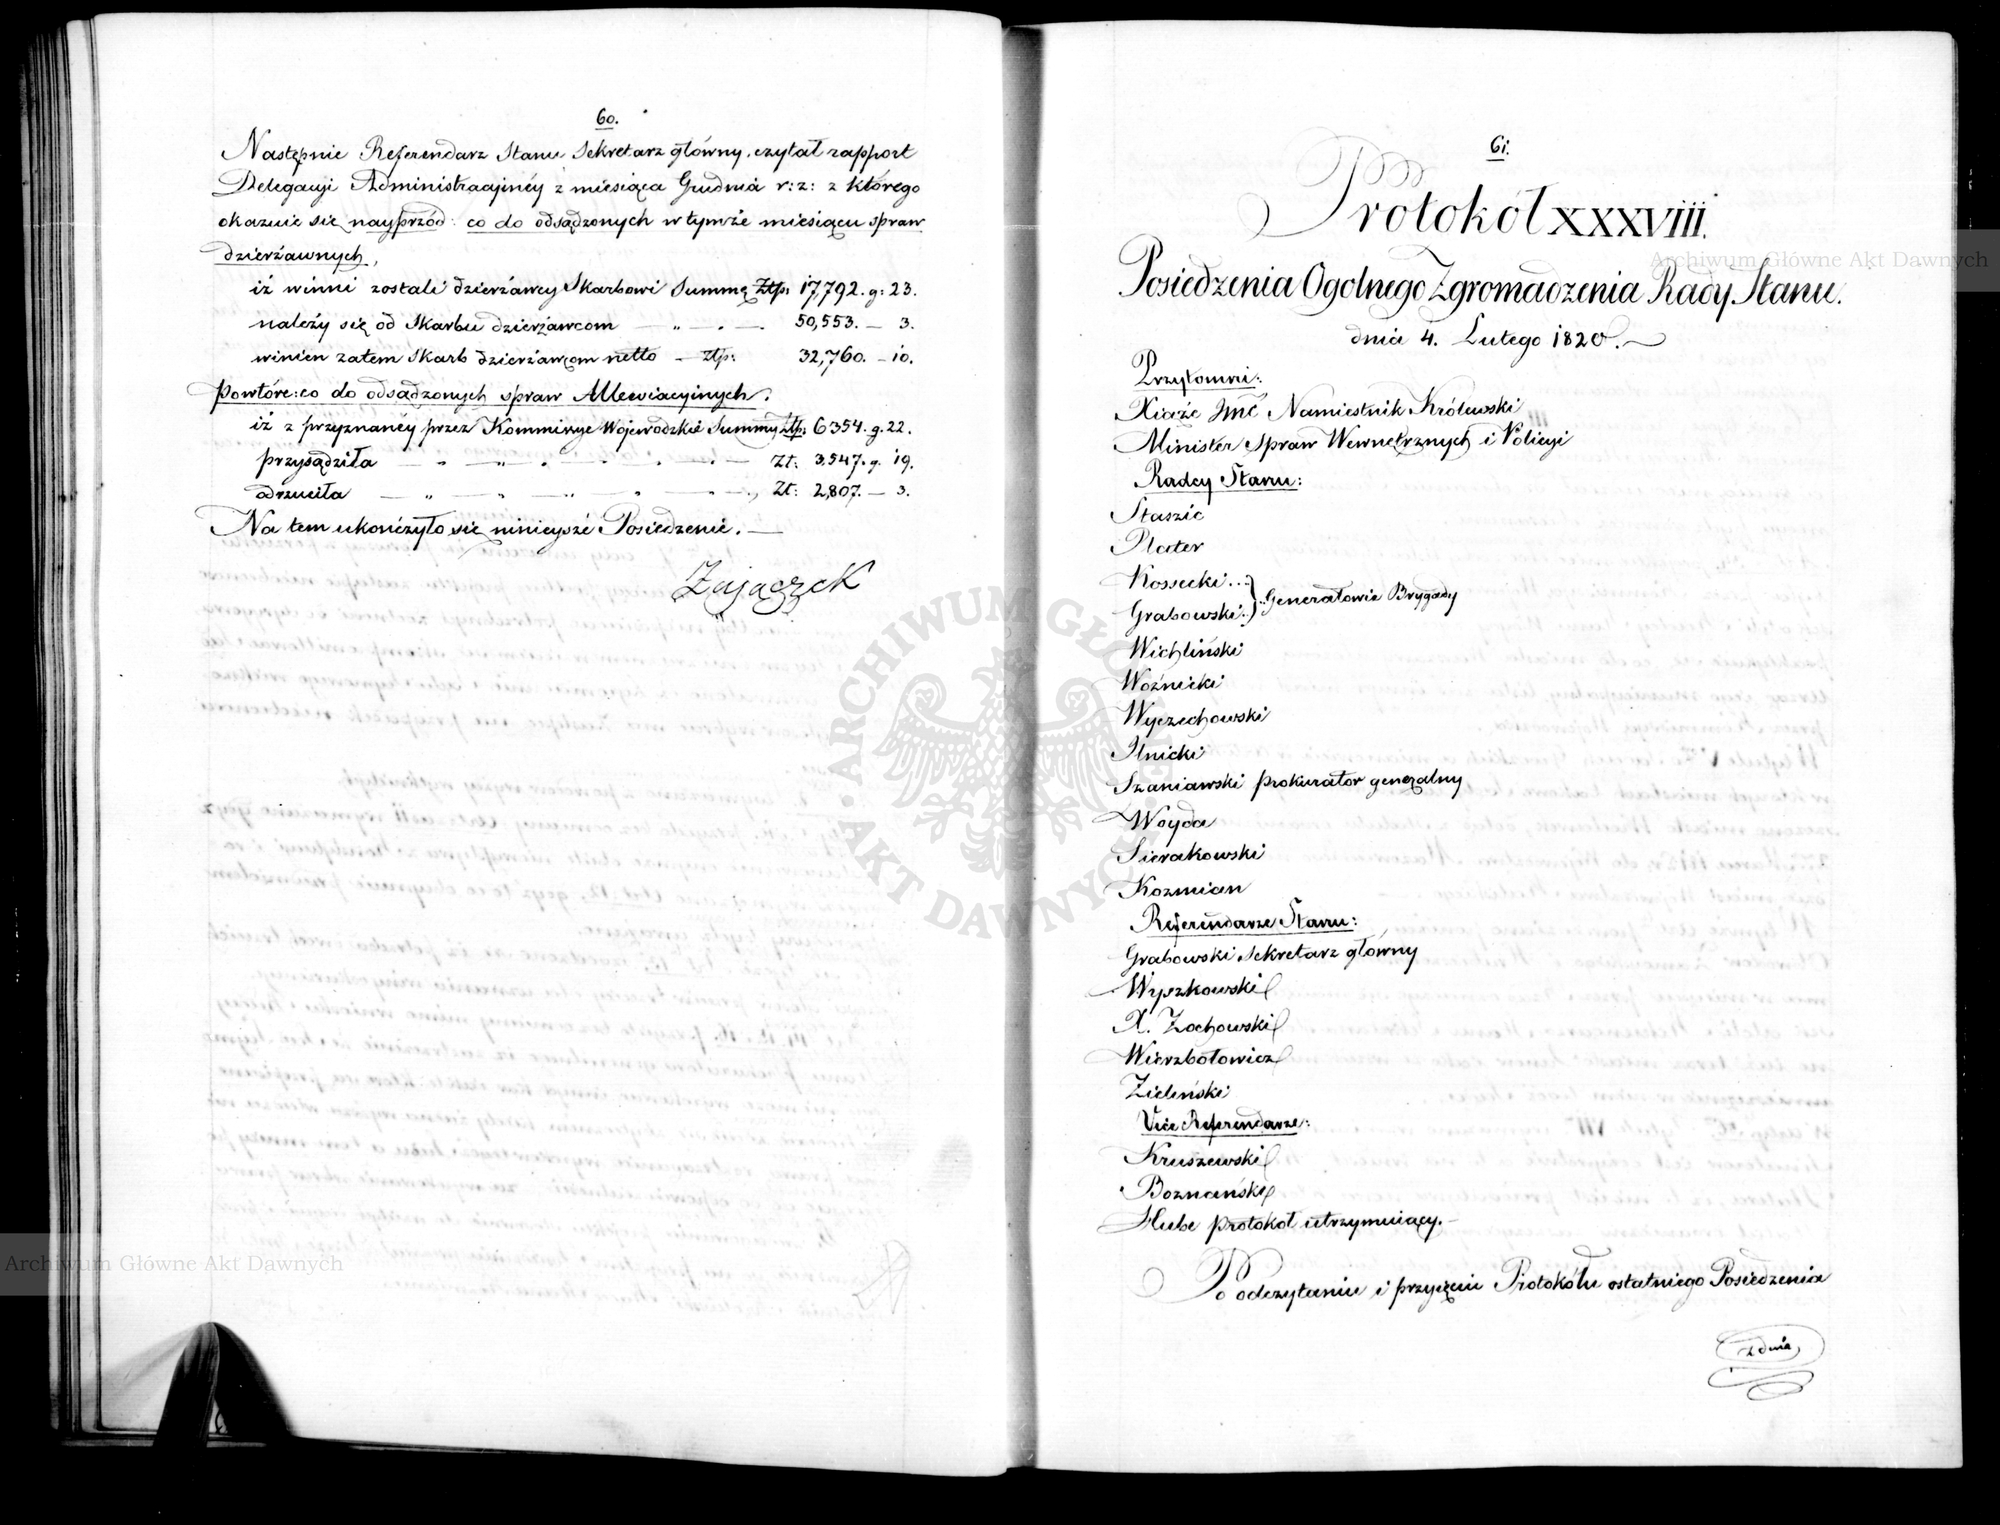 60.
Następnie Referendarz Stanu Sekretarz główny, czytał rapport
Delegacyi Administracyinéy z miesiąca Grudnia r: z: z którego
okazuie się nayprzód: co do odsądzonych w tymże miesiącu spraw
dzierżawnych,
iż winni zostali dzierżawcy Skarbowi Summę Ztp: 17,792. g: 23.
należy się od Skarbu dzierżawcom — " — . — 50,553. — 3.
winien zatem Skarb dzierżawcom netto — ztp: 32,760. — 10.
Powtóre: co do odsądzonych spraw Allewiacyinych.
iż z przyznanéy przez Kommissye Wojewodzkié Summy Ztp: 6354. g. 22.
przysądziła — " — " — " — " — Zt: 3,547. g. 19.
odrzuciła — " — " — " — " — Zt: 2,807. — 3.
Na tem ukończyło się ninieysze Posiedzenie. —
Zajączek
61.
Protokół XXXVIII.
Posiedzenia Ogolnego Zgromadzenia Rady Stanu.
dnia 4. Lutego 1820. —
Przytomni:
Xiąże Jmć Namiestnik Królewski
Minister Spraw Wewnętrznych i Policyi
Radcy Stanu:
Staszic
Plater
Kossecki ..
Grabowski .. } Generałowie Brygady
Wichliński
Woźnicki
Wyczechowski
Ilnicki
Szaniawski prokurator generalny
Woyda
Sierakowski
Kozmian
Referendarze Stanu:
Grabowski Sekretarz główny
Wyszkowski
X. Zochowski
Wierzbołowicz
Zieleński
Vice Referendarze:
Kruszewski
Boznański
Hube protokoł utrzymuiący. —
Po odczytaniu i przyięciu Protokółu ostatniego Posiedzenia
z dnia
Archiwum Główne Akt Dawnych
Archiwum Główne Akt Dawnych
ARCHIWUM GŁÓWNE AKT DAWNYCH